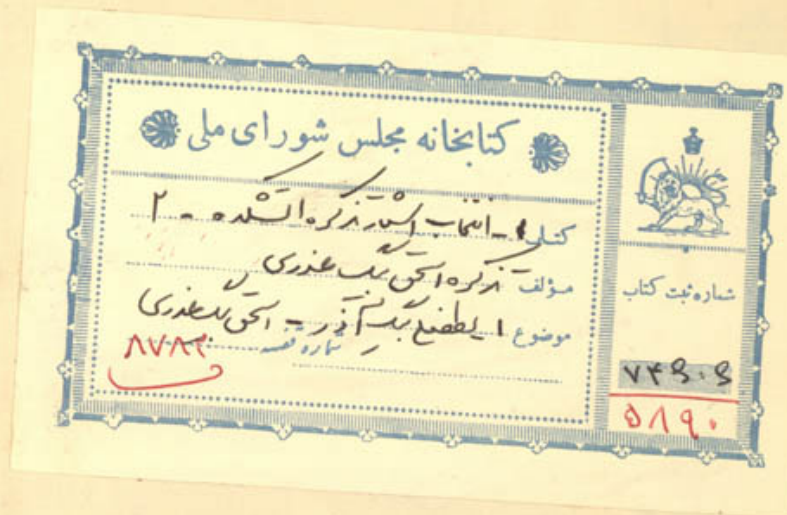 کتابخانه مجلس شورای ملی
کتاب ۱ - انتخاب اشعار تذکره آتشکده - ۲
مؤلف تذکره اسحق بیک عذری
موضوع ۱ لطفعلی بیک آذر - اسحق بیک عذری
شماره قفسه ۸۷۸۲
شماره ثبت کتاب
۷۴۶۰۶
۵۸۹۰